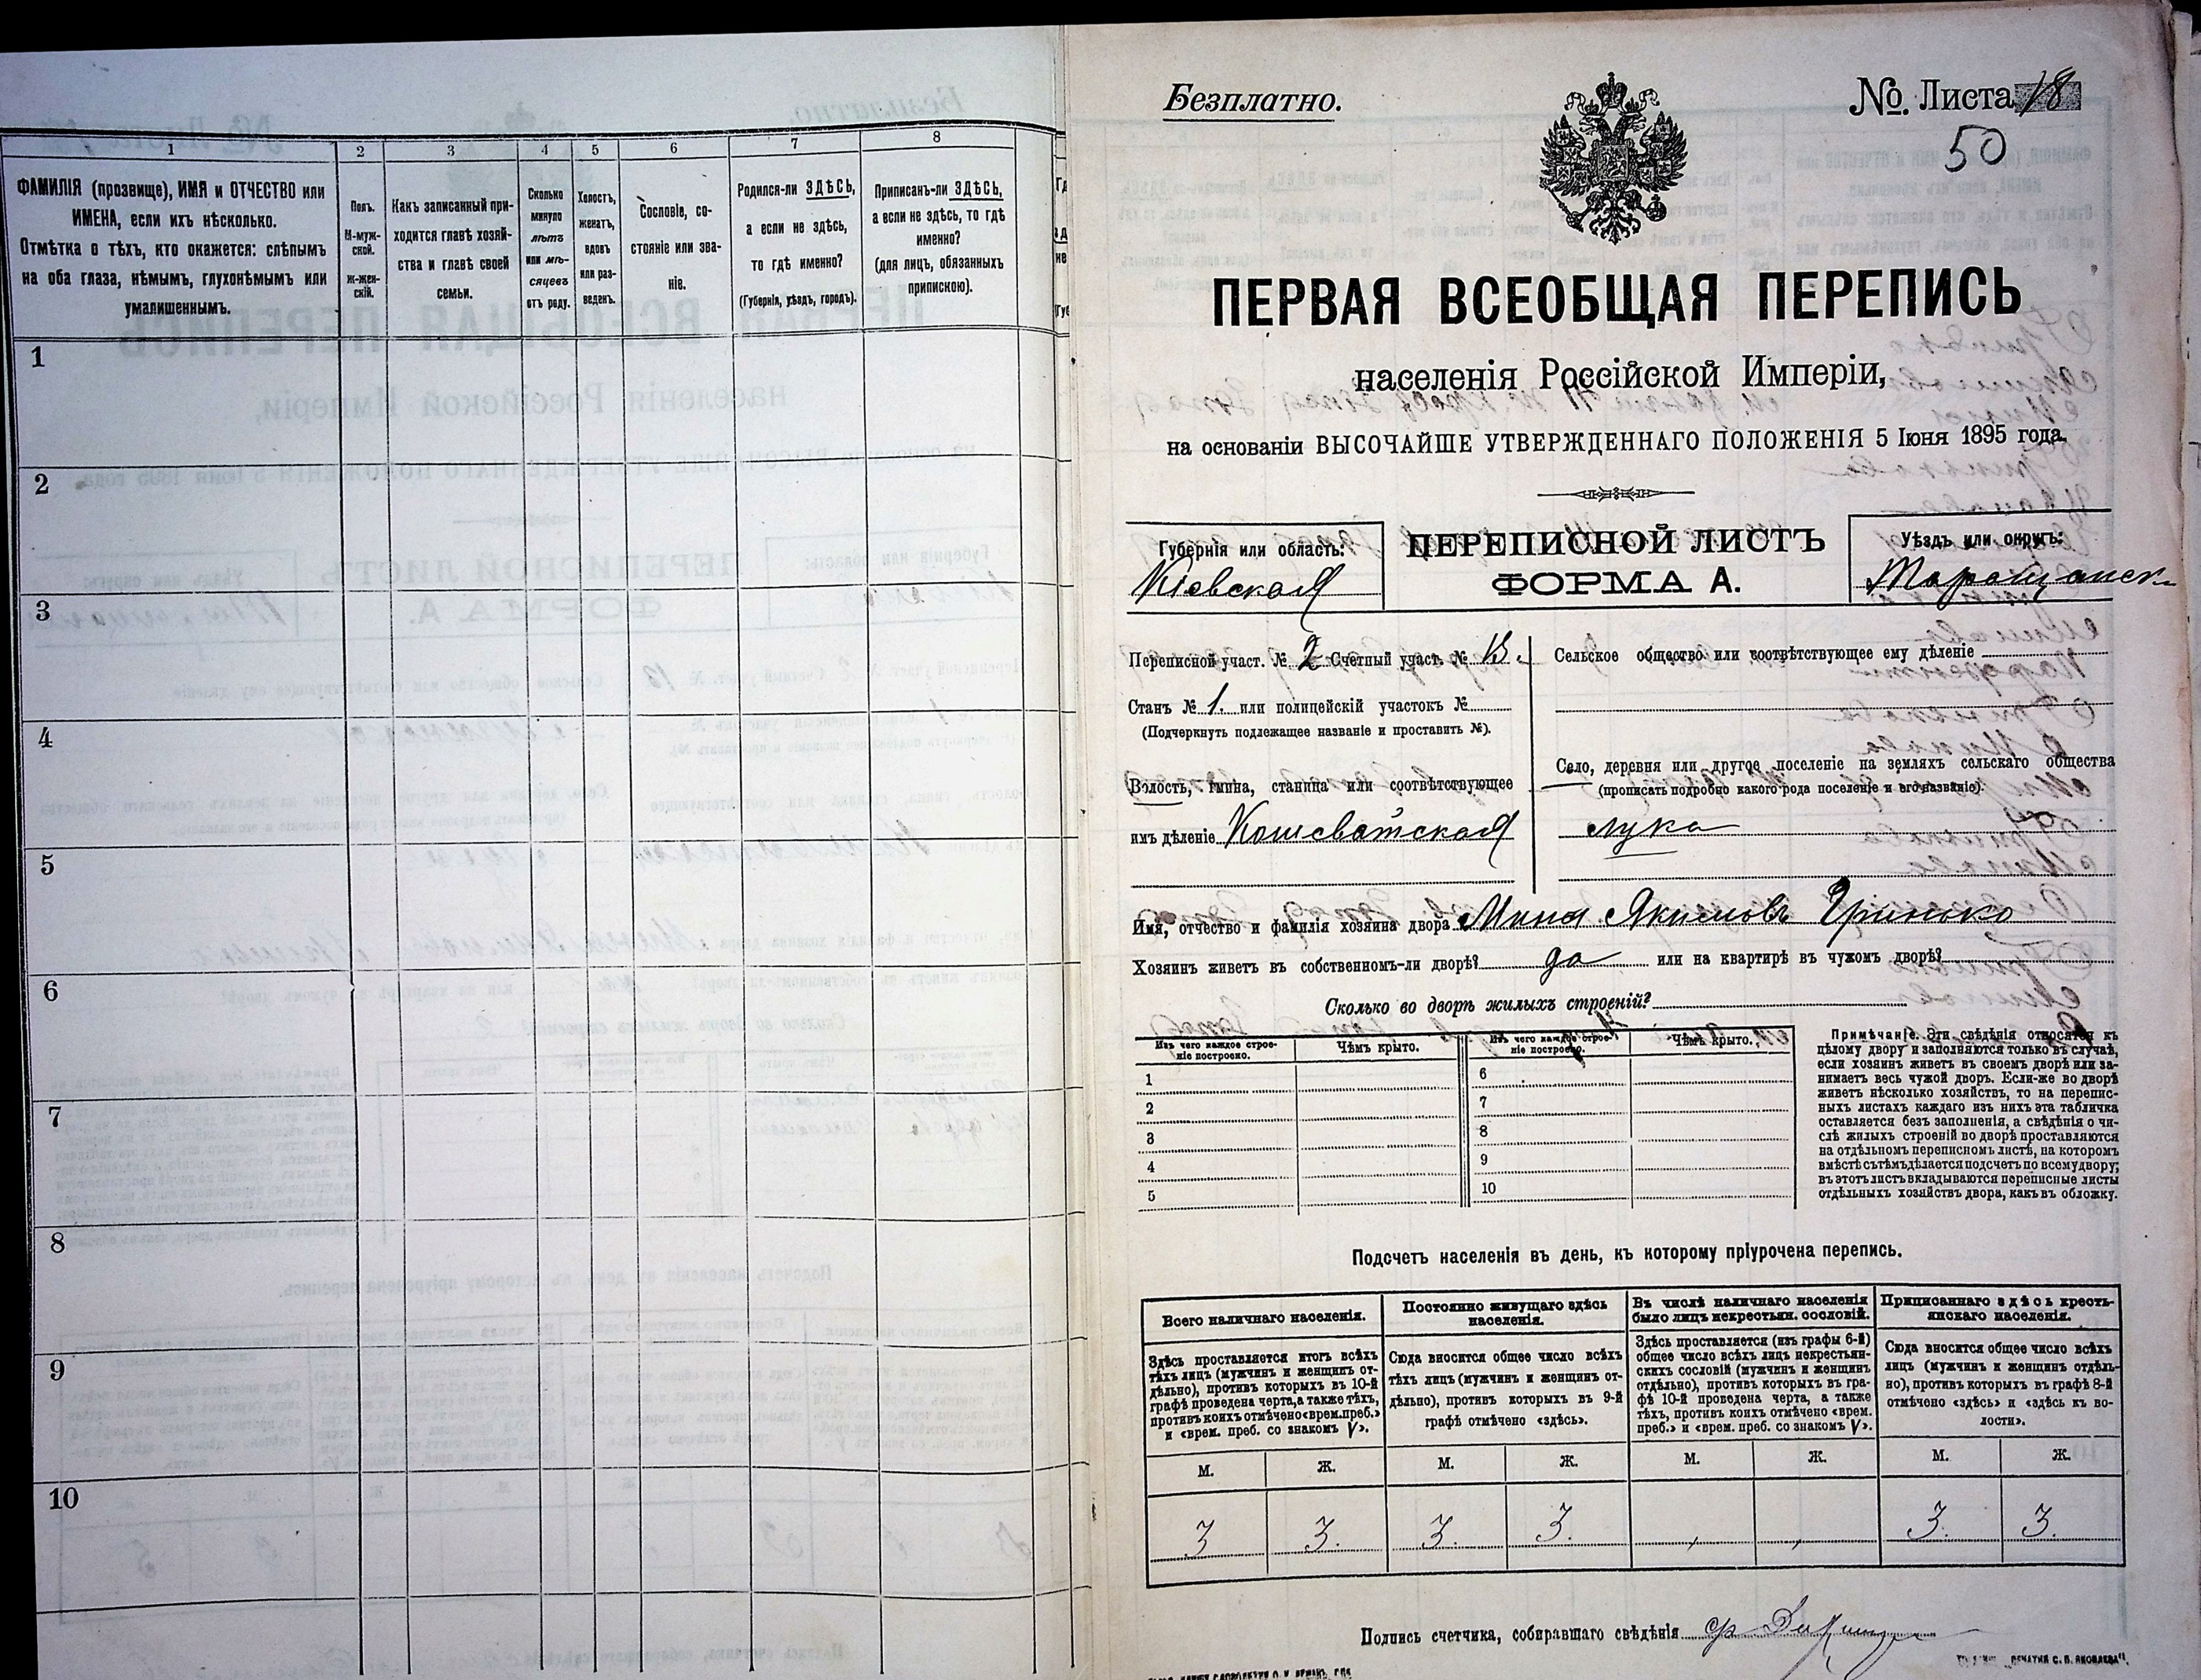 1
2
3
4
5
6
7
8
ФАМИЛІЯ (прозвище), ИМЯ и ОТЧЕСТВО или
ИМЕНА, если ихъ нѣсколько.
Отмѣтка о тѣхъ, кто окажется: слѣпымъ
на оба глаза, нѣмымъ, глухонѣмымъ или
умалишеннымъ.
Полъ.
М-муж-
ской.
Ж-жен-
скій.
Какъ записанный при-
ходится главѣ хозяй-
ства и главѣ своей
семьи.
Сколько
минуло
лѣтъ
или мѣ-
сяцевъ
отъ роду.
Холостъ,
женатъ,
вдовъ
или раз-
веденъ.
Сословіе, со-
стояніе или зва-
ніе.
Родился-ли ЗДѢСЬ,
а если не здѣсь,
то гдѣ именно?
(Губернія, уѣздъ, городъ).
Приписанъ-ли ЗДѢСЬ,
а если не здѣсь, то гдѣ
именно?
(для лицъ, обязанныхъ
припискою).
1
2
3
4
5
6
7
8
9
10
Безплатно.
№ Листа 18
50
ПЕРВАЯ ВСЕОБЩАЯ ПЕРЕПИСЬ
населенія Россійской Имперіи,
на основаніи ВЫСОЧАЙШЕ УТВЕРЖДЕННАГО ПОЛОЖЕНІЯ 5 Іюня 1895 года.
Губернія или область:
Кіевская
ПЕРЕПИСНОЙ ЛИСТЪ
ФОРМА А.
Уѣздъ или округъ:
Таращанск
Переписной участ. № 2 Счетный участ. № 13.
Станъ № 1. или полицейскій участокъ №
(Подчеркнуть подлежащее названіе и проставить №).
Волость, гмина, станица или соотвѣтствующее
имъ дѣленіе Кошеватская
Сельское общество или соотвѣтствующее ему дѣленіе
Село, деревня или другое поселеніе на земляхъ сельскаго общества
(прописать подробно какого рода поселеніе и его названіе).
Лука
Имя, отчество и фамилія хозяина двора Мина Якимовъ Гринько
Хозяинъ живетъ въ собственномъ-ли дворѣ? да или на квартирѣ въ чужомъ дворѣ?
Сколько во дворѣ жилыхъ строеній?
Изъ чего каждое строе-
ніе построено.
Чѣмъ крыто.
Изъ чего каждое строе-
ніе построено.
Чѣмъ крыто.
1
2
3
4
5
6
7
8
9
10
Примѣчаніе. Эти свѣдѣнія относятся къ
цѣлому двору и заполняются только въ случаѣ,
если хозяинъ живетъ въ своемъ дворѣ или за-
нимаетъ весь чужой дворъ. Если-же во дворѣ
живетъ нѣсколько хозяйствъ, то на перепис-
ныхъ листахъ каждаго изъ нихъ эта табличка
оставляется безъ заполненія, а свѣдѣнія о чи-
слѣ жилыхъ строеній во дворѣ проставляются
на отдѣльномъ переписномъ листѣ, на которомъ
вмѣстѣ съ тѣмъ дѣлается подсчетъ по всему двору;
въ этотъ листъ вкладываются переписные листы
отдѣльныхъ хозяйствъ двора, какъ въ обложку.
Подсчетъ населенія въ день, къ которому пріурочена перепись.
Всего наличнаго населенія.
Постоянно живущаго здѣсь
населенія.
Въ числѣ наличнаго населенія
было лицъ некрестьян. сословій.
Приписаннаго здѣсь кресть-
янскаго населенія.
Здѣсь проставляется итогъ всѣхъ
тѣхъ лицъ (мужчинъ и женщинъ от-
дѣльно), противъ которыхъ въ 10-й
графѣ проведена черта, а также тѣхъ,
противъ коихъ отмѣчено «врем. преб.»
и «врем. преб. со знакомъ V».
Сюда вносится общее число всѣхъ
тѣхъ лицъ (мужчинъ и женщинъ от-
дѣльно), противъ которыхъ въ 9-й
графѣ отмѣчено «здѣсь».
Здѣсь проставляется (изъ графы 6-й)
общее число всѣхъ лицъ некрестьян-
скихъ сословій (мужчинъ и женщинъ
отдѣльно), противъ которыхъ въ гра-
фѣ 10-й проведена черта, а также
тѣхъ, противъ коихъ отмѣчено «врем.
преб.» и «врем. преб. со знакомъ V».
Сюда вносится общее число всѣхъ
лицъ (мужчинъ и женщинъ отдѣль-
но), противъ которыхъ въ графѣ 8-й
отмѣчено «здѣсь» и «здѣсь къ во-
лости».
М. Ж. М. Ж. М. Ж. М. Ж.
3 3. 3. 3. 3. 3.
Подпись счетчика, собиравшаго свѣдѣнія